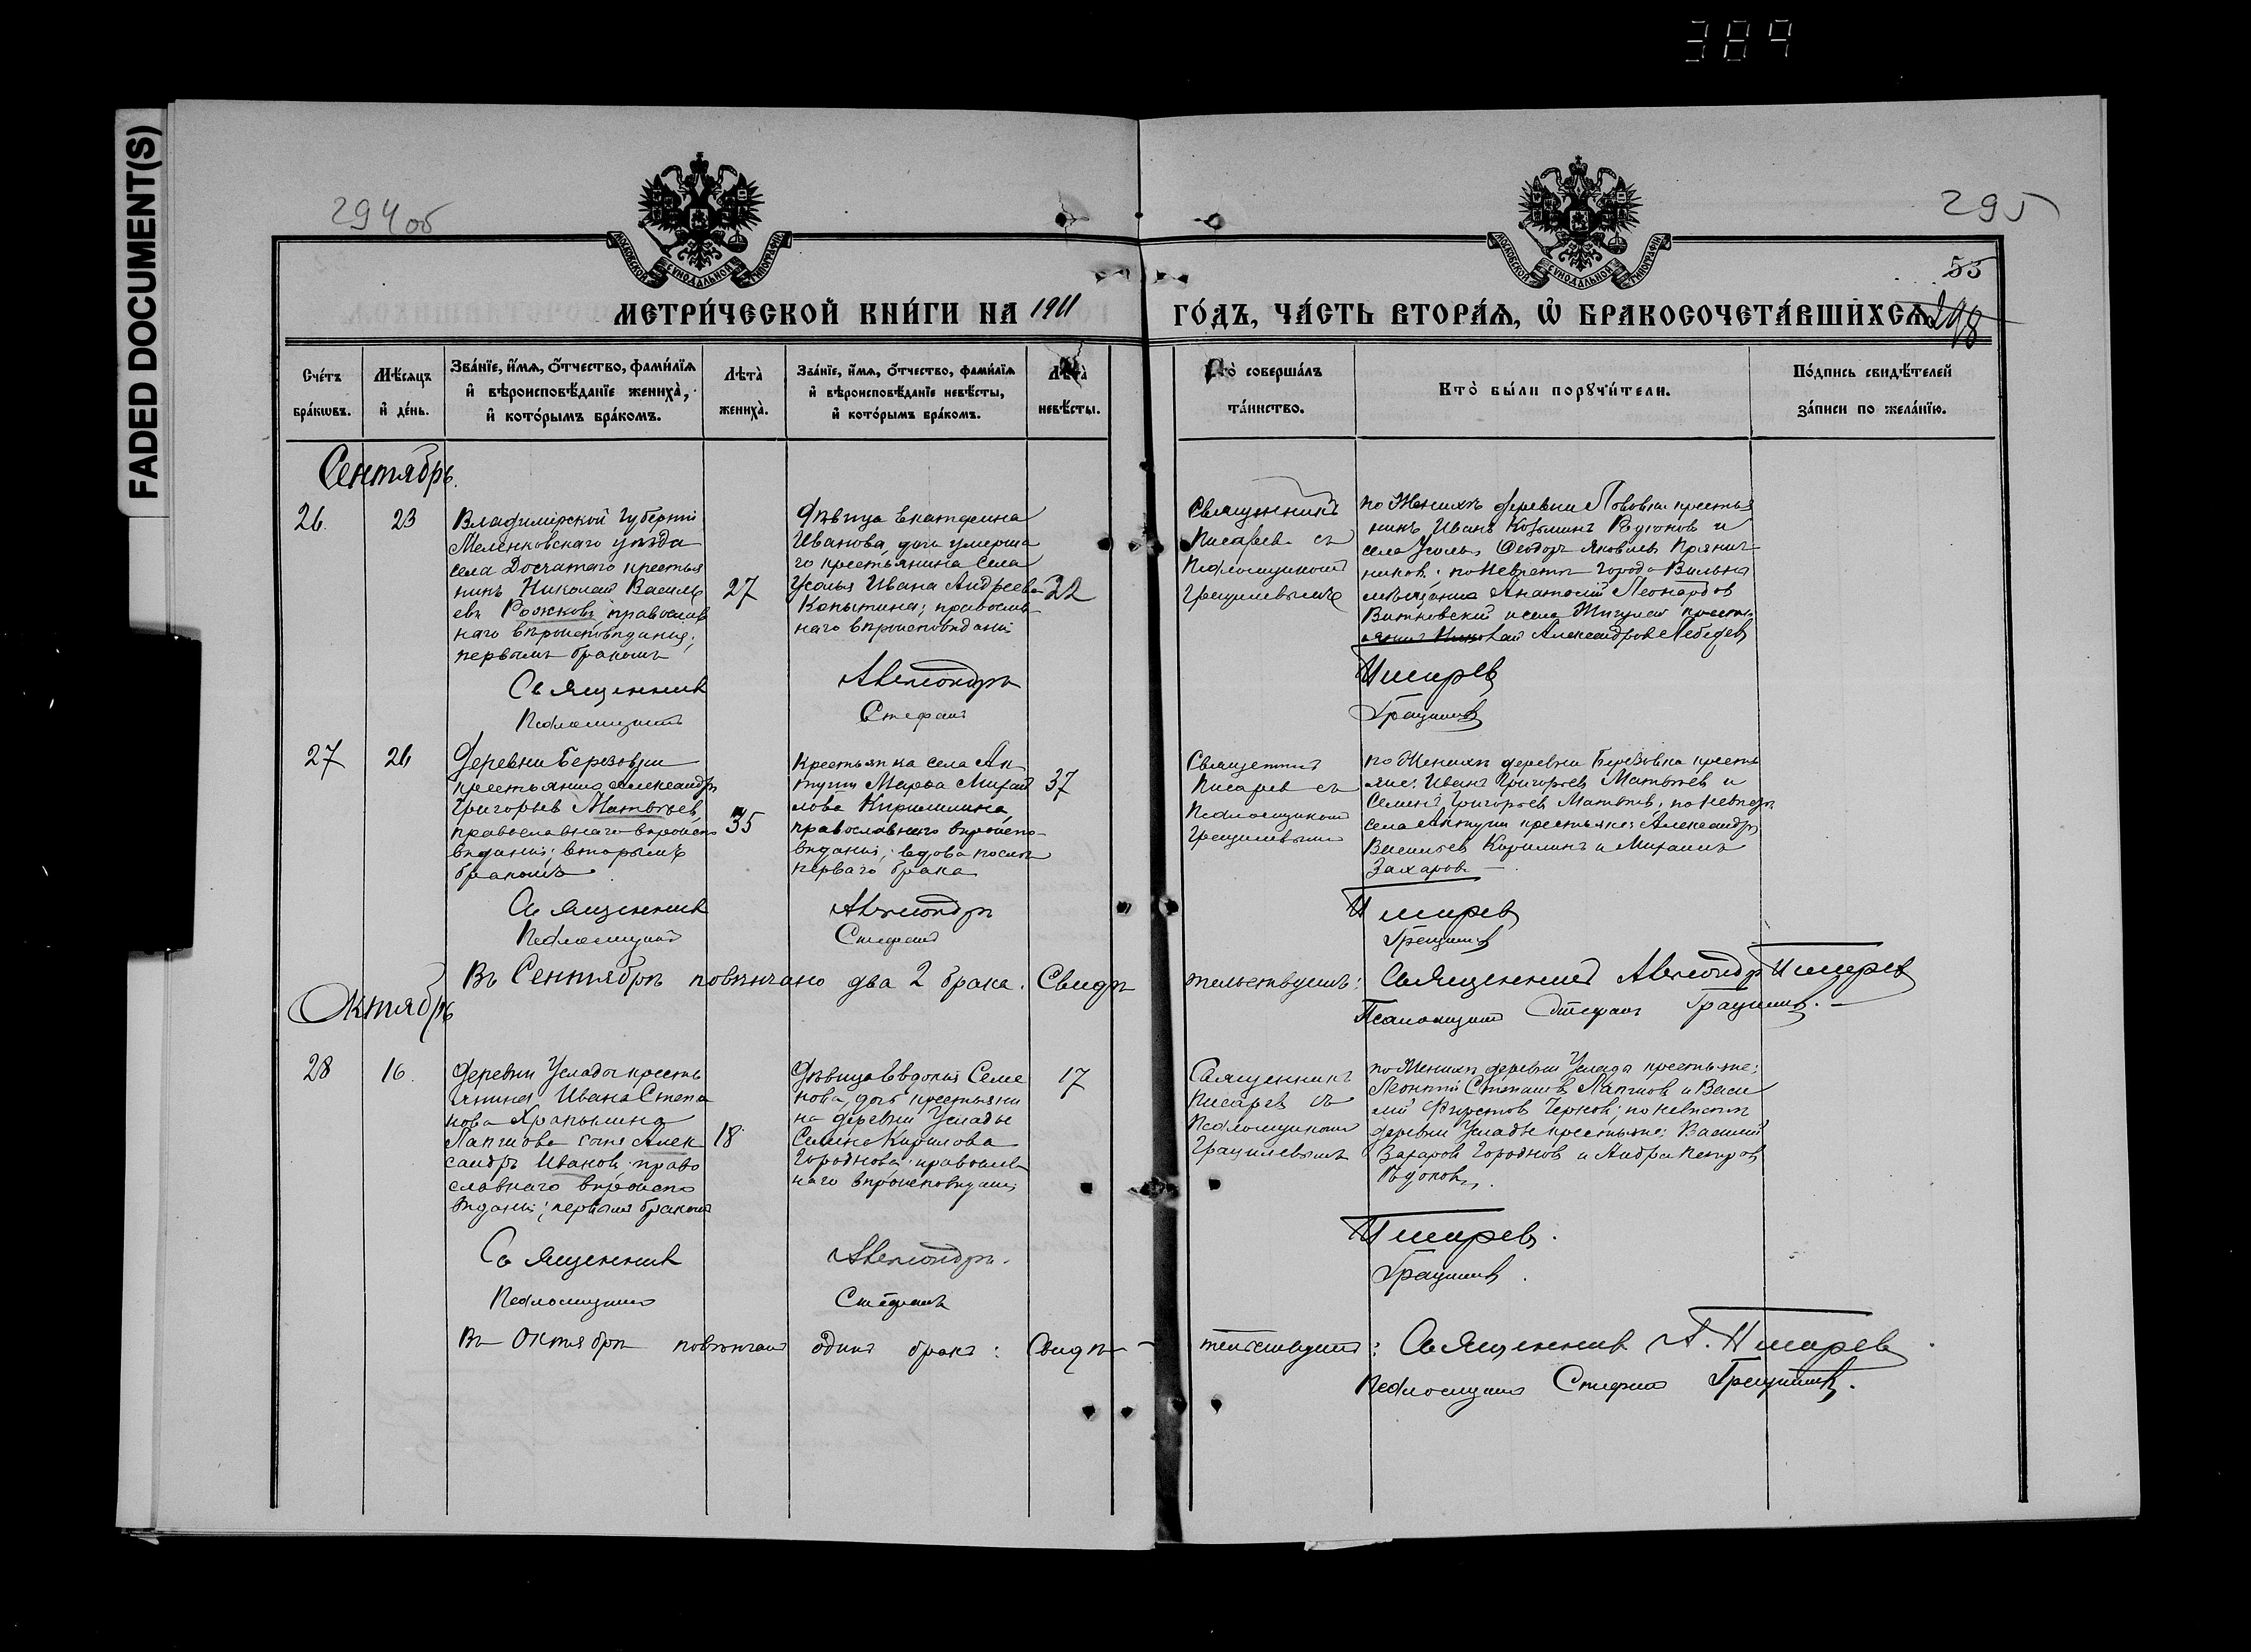 389
FADED DOCUMENT(S)
294 об
295
МОСКОВСКОЙ СѴНОДАЛЬНОЙ ТИПОГРАФІИ
МОСКОВСКОЙ СѴНОДАЛЬНОЙ ТИПОГРАФІИ
55
МЕТРИ́ЧЕСКОЙ КНИ́ГИ НА 1911
ГО́ДЪ, ЧА́СТЬ ВТОРА́Ѧ, Ѡ҆ БРАКОСОЧЕТА́ВШИХСѦ.
298
Сче́тъ бра́кѡвъ.
Мѣ́сѧцъ и҆ де́нь.
Зва́нїе, и҆́мѧ, ѻ҆́тчество, фами́лїѧ и҆ вѣроисповѣ́данїе жениха̀, и҆ кото́рымъ бра́комъ.
Лѣта̀ жениха̀.
Зва́нїе, и҆́мѧ, ѻ҆́тчество, фами́лїѧ и҆ вѣроисповѣ́данїе невѣ́сты, и҆ кото́рымъ бра́комъ.
Лѣта̀ невѣ́сты.
Кто̀ соверша́лъ та́инство.
Кто̀ бы́ли порꙋчи́тели.
По́дпись свидѣ́телей за́писи по жела́нїю.
Сентябрь.
26.
23
Владимірской Губерніи
Меленковскаго уѣзда
села Досчатаго крестья
нинъ Николай Василь
евъ Рожковъ, православ
наго вѣроисповѣданія;
первымъ бракомъ
27
Дѣвица Екатерина
Иванова, дочь умерша
го крестьянина села
Усолья Ивана Андреева
Копытина; православ-
наго вѣроисповѣданія
22
Священникъ
Писаревъ съ
Псаломщикомъ
Грацилевымъ
по Женихѣ деревни крестья
нинъ Иванъ Козминъ Родіонов и
села Усолья Ѳеодоръ Яковлевъ Прянич-
ников; по Невѣстѣ города Вильна
мѣщанинъ Анатолій Леонардов
Витковскій и села Жигулей крестья
нинъ Николай Александров Лебедевъ
Священник
Александръ
Писаревъ
Псаломщикъ
Стефанъ
Грацилевъ
27
26
Деревни Березовки
крестьянинъ Александръ
Григорьев Матвѣевъ,
православнаго вѣроиспо
вѣданія; вторымъ
бракомъ.
35
Крестьянка села Ак
туши Марѳа Михай
лова Кирилина,
православнаго вѣроиспо-
вѣданія; вдова послѣ
перваго брака
37
Священникъ
Писарев съ
Псаломщикомъ
Грацилевымъ
по Женихѣ деревни Березовка крестья
не: Иванъ Григорьев Матвѣев и
Семенъ Григорьев Матвѣевъ; по Невѣстѣ
села Актуши крестьяне: Александръ
Васильев Кирилинъ и Михаилъ
Захаров.
Священник
Александръ
Писаревъ
Псаломщикъ
Стефанъ
Грацилевъ
Въ Сентябрѣ повѣнчано два 2 брака. Свидѣ
тельствуемъ: Священникъ Александръ Писаревъ
Псаломщикъ Стефанъ Грацилевъ.
Октябрь
28
16.
Деревни Услада кресть
янина Ивана Степа
нова
Лапшова сынъ Алек
сандръ Иванов, право
славнаго вѣроиспо
вѣданія; первымъ бракомъ
18
Дѣвица Евдокія Семе
нова, дочь крестьяни
на деревни Услады
Семена Кирилова
Городнова; православ
наго вѣроисповѣданія
17
Священникъ
Писарев съ
Псаломщикомъ
Грацилевымъ
по Женихѣ деревни Услада крестьяне:
Леонтій Степанов Лапшов и Васи
лій Чернов; по невѣстѣ
деревни Услады крестьяне: Василій
Захаров Городнов и Андрей Петров
Священник
Александръ.
Писаревъ.
Псаломщикъ
Стефанъ
Грацилевъ.
Въ Октябрѣ повѣнчанъ одинъ бракъ: Свидѣ-
тельствуемъ: Священник А. Писаревъ
Псаломщикъ Стефанъ Грацилевъ.